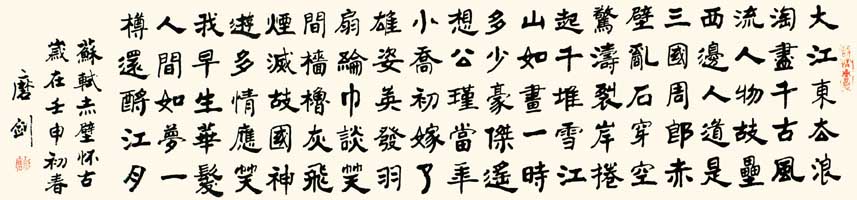 大江東去浪
淘盡千古風
流人物故壘
西邊人道是
三國周郎赤
壁亂石穿空
驚濤裂岸捲
起千堆雪江
山如畫一時
多少豪傑遙
想公瑾當年
小喬初嫁了
雄姿英發羽
扇綸巾談笑
間檣櫓灰飛
煙滅故國神
遊多情應笑
我早生華髮
人間如夢一
樽還酹江月
蘇軾赤壁怀古
歲在壬申初春
磨剑